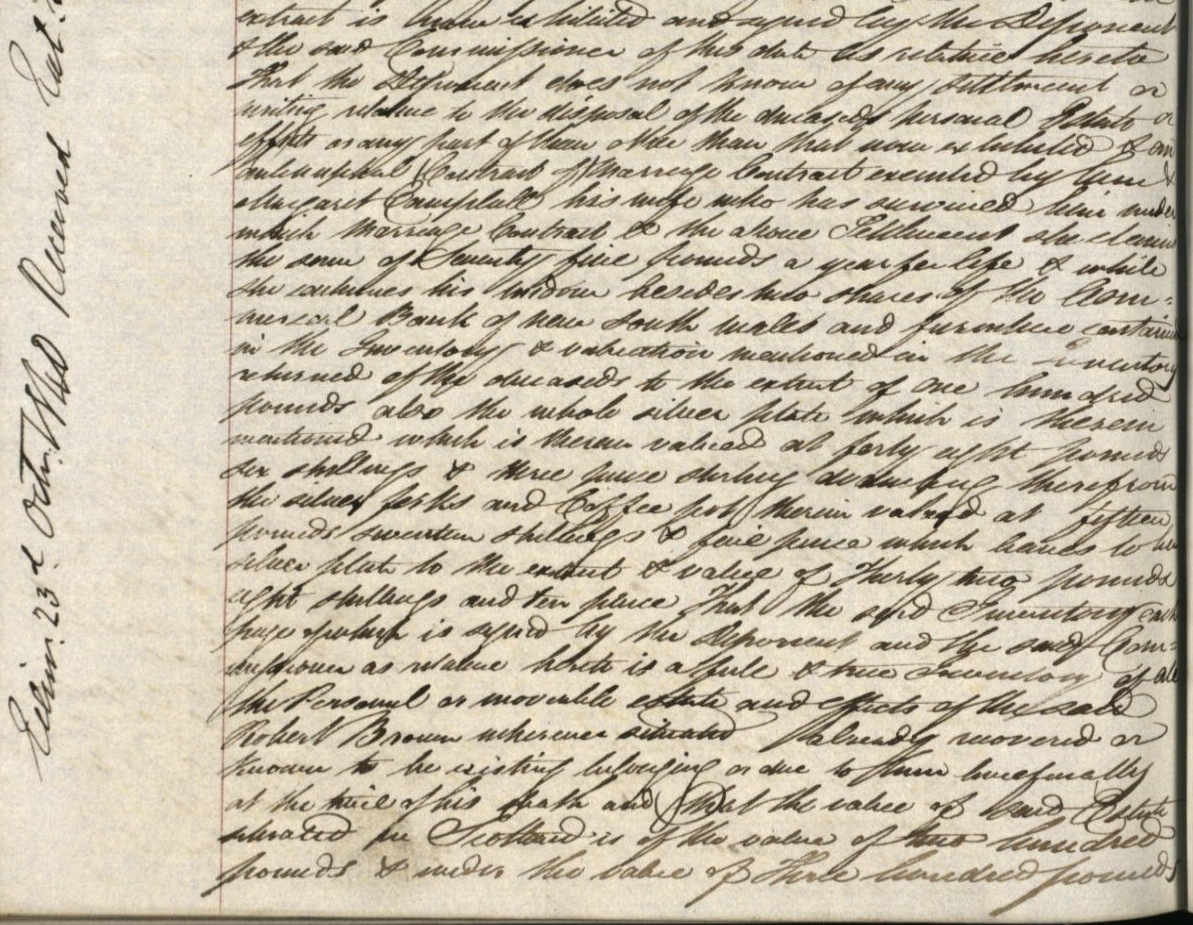 extract is exhibited and signed by the Deponent
& the said Commissioner of this date as relative hereto
That the Deponent does not know of any settlement or
writing relative to the disposal of the deceaseds personal Estate or
effects or any part of them other than that now exhibited & an
antenuptial Contract of Marriage Contract executed by him &
Margaret Campbell his wife who has survived him under
which Marriage Contract & the above Settlement she claims
the sum of Seventy five pounds a year for life & while
she continues his widow besides two shares of the Com=
mercial Bank of New South Wales and furniture contained
in the Inventory & valuation mentioned in the Inventory
returned of the deceaseds to the extent of one hundred
pounds also the whole silver plate which is therein
mentioned which is therein valued at forty eight pounds
six shillings & three pence sterling deducting therefrom
the silver forks and Coffee pot therein valued at fifteen
pounds seventeen shillings & five pence which leaves to her
silver plate to the extent & value of Thirty two pounds
eight shillings and ten pence That the said Inventory each
page of which is signed by the Deponent and the said Com=
missioner as relative hereto is a full & true Inventory of all
the Personal or moveable estate and effects of the said
Robert Brown wherever situated already recovered or
known to be existing belonging or due to him beneficially
at the time of his death and that the value of said Estate
situated in Scotland is of the value of two hundred
pounds & under the value of Three hundred pounds
Edinr. 23d Octr. 1860 Received